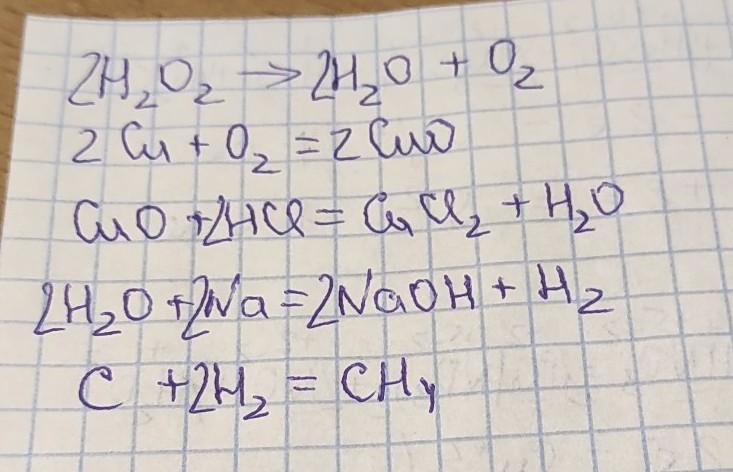 2H₂O₂ → 2H₂O + O₂
2Cu + O₂ = 2CuO
CuO + 2HCl = CuCl₂ + H₂O
2H₂O + 2Na = 2NaOH + H₂
C + 2H₂ = CH₄